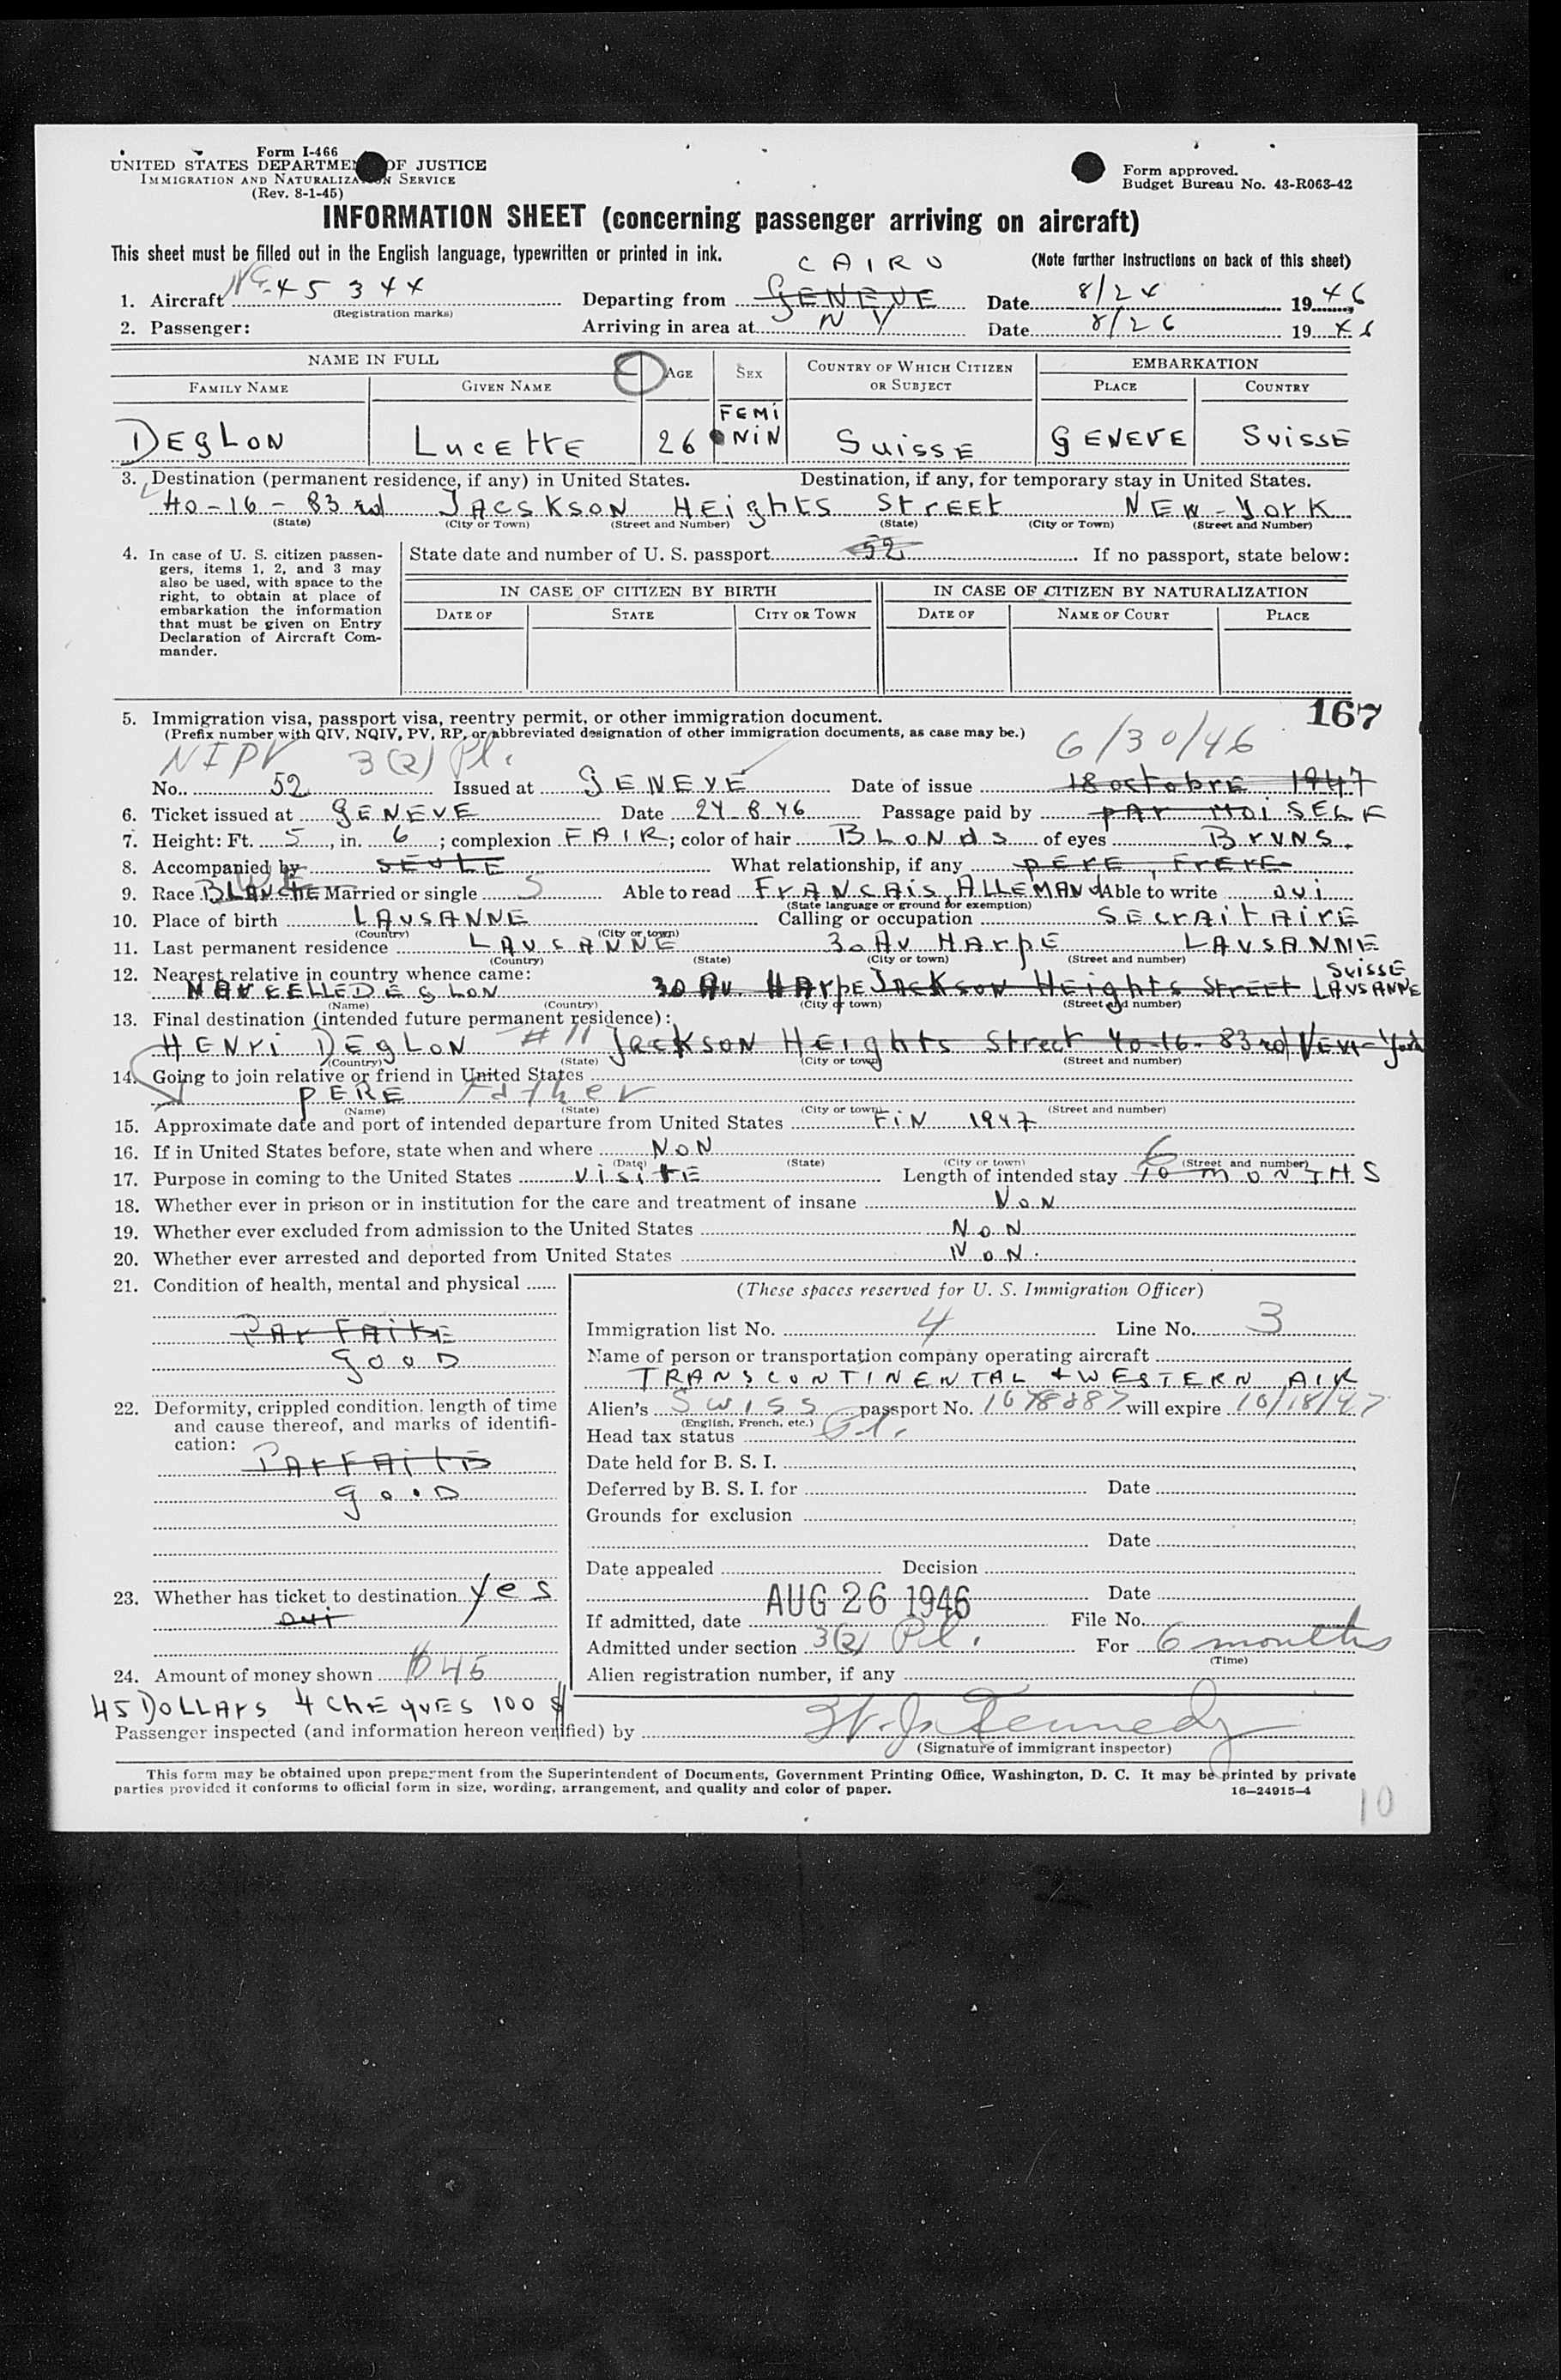 Form I-466
UNITED STATES DEPARTMENT OF JUSTICE
IMMIGRATION AND NATURALIZATION SERVICE
(Rev. 8-1-45)
Form approved.
Budget Bureau No. 43-R063-42
INFORMATION SHEET (concerning passenger arriving on aircraft)
This sheet must be filled out in the English language, typewritten or printed in ink.
(Note further instructions on back of this sheet)
CAIRO
1. Aircraft NC-45344 Departing from GENEVE Date 8/24 1946
(Registration marks)
2. Passenger: Arriving in area at NY Date 8/26 1946
NAME IN FULL AGE SEX COUNTRY OF WHICH CITIZEN OR SUBJECT EMBARKATION
FAMILY NAME GIVEN NAME PLACE COUNTRY
DEGLON LUCETTE 26 FEMININ SUISSE GENEVE SUISSE
3. Destination (permanent residence, if any) in United States. Destination, if any, for temporary stay in United States.
40-16-83rd JACSKSON HEIGHTS STREET NEW-YORK
(State) (City or Town) (Street and Number) (State) (City or Town) (Street and Number)
4. In case of U. S. citizen passengers, items 1, 2, and 3 may also be used, with space to the right, to obtain at place of embarkation the information that must be given on Entry Declaration of Aircraft Commander.
State date and number of U. S. passport 52 If no passport, state below:
IN CASE OF CITIZEN BY BIRTH IN CASE OF CITIZEN BY NATURALIZATION
DATE OF STATE CITY OR TOWN DATE OF NAME OF COURT PLACE
167
5. Immigration visa, passport visa, reentry permit, or other immigration document.
(Prefix number with QIV, NQIV, PV, RP, or abbreviated designation of other immigration documents, as case may be.)
NIPV 3(2) Pl. 6/30/46
No. 52 Issued at GENEVE Date of issue 18 octobre 1947
6. Ticket issued at GENEVE Date 24.8.46 Passage paid by par moi SELF
7. Height: Ft. 5, in. 6; complexion FAIR; color of hair BLONDS of eyes BRUNS.
8. Accompanied by SEULE What relationship, if any PERE, FRERE
9. Race BLANCHE Married or single S Able to read FRANCAIS, ALLEMAND Able to write oui
(State language or ground for exemption)
10. Place of birth LAUSANNE Calling or occupation SECRAITAIRE
(Country) (City or town)
11. Last permanent residence LAUSANNE 30 AV HARPE LAUSANNE
(Country) (State) (City or town) (Street and number)
12. Nearest relative in country whence came: SUISSE
MARCELLE DEGLON 30 AV. HARPE JACKSON HEIGHTS STREET LAUSANNE
(Name) (Country) (City or town) (Street and number)
13. Final destination (intended future permanent residence):
HENRI DEGLON #11 JACKSON HEIGHTS Street 40-16-83rd NEW-York
(Country) (State) (City or town) (Street and number)
14. Going to join relative or friend in United States
PERE Father
(Name) (State) (City or town) (Street and number)
15. Approximate date and port of intended departure from United States FIN 1947
16. If in United States before, state when and where NON
(Date) (State) (City or town) (Street and number)
17. Purpose in coming to the United States VISITE Length of intended stay 6 10 MONTHS
18. Whether ever in prison or in institution for the care and treatment of insane NON
19. Whether ever excluded from admission to the United States NON
20. Whether ever arrested and deported from United States NON.
21. Condition of health, mental and physical
PARFAITE
GOOD
22. Deformity, crippled condition, length of time and cause thereof, and marks of identification:
PARFAITE
GOOD
23. Whether has ticket to destination yes
oui
24. Amount of money shown $45
45 DOLLARS 4 CHEQUES 100 $
(These spaces reserved for U. S. Immigration Officer)
Immigration list No. 4 Line No. 3
Name of person or transportation company operating aircraft
TRANSCONTINENTAL & WESTERN AIR
Alien's SWISS passport No. 1678387 will expire 10/18/47
(English, French, etc.)
Head tax status Pl.
Date held for B. S. I.
Deferred by B. S. I. for Date
Grounds for exclusion
Date
Date appealed Decision
Date
If admitted, date AUG 26 1946 File No.
Admitted under section 3(2) Pl. For 6 months
(Time)
Alien registration number, if any
Passenger inspected (and information hereon verified) by Kennedy
(Signature of immigrant inspector)
This form may be obtained upon prepayment from the Superintendent of Documents, Government Printing Office, Washington, D. C. It may be printed by private
parties provided it conforms to official form in size, wording, arrangement, and quality and color of paper.
16—24915-4
10